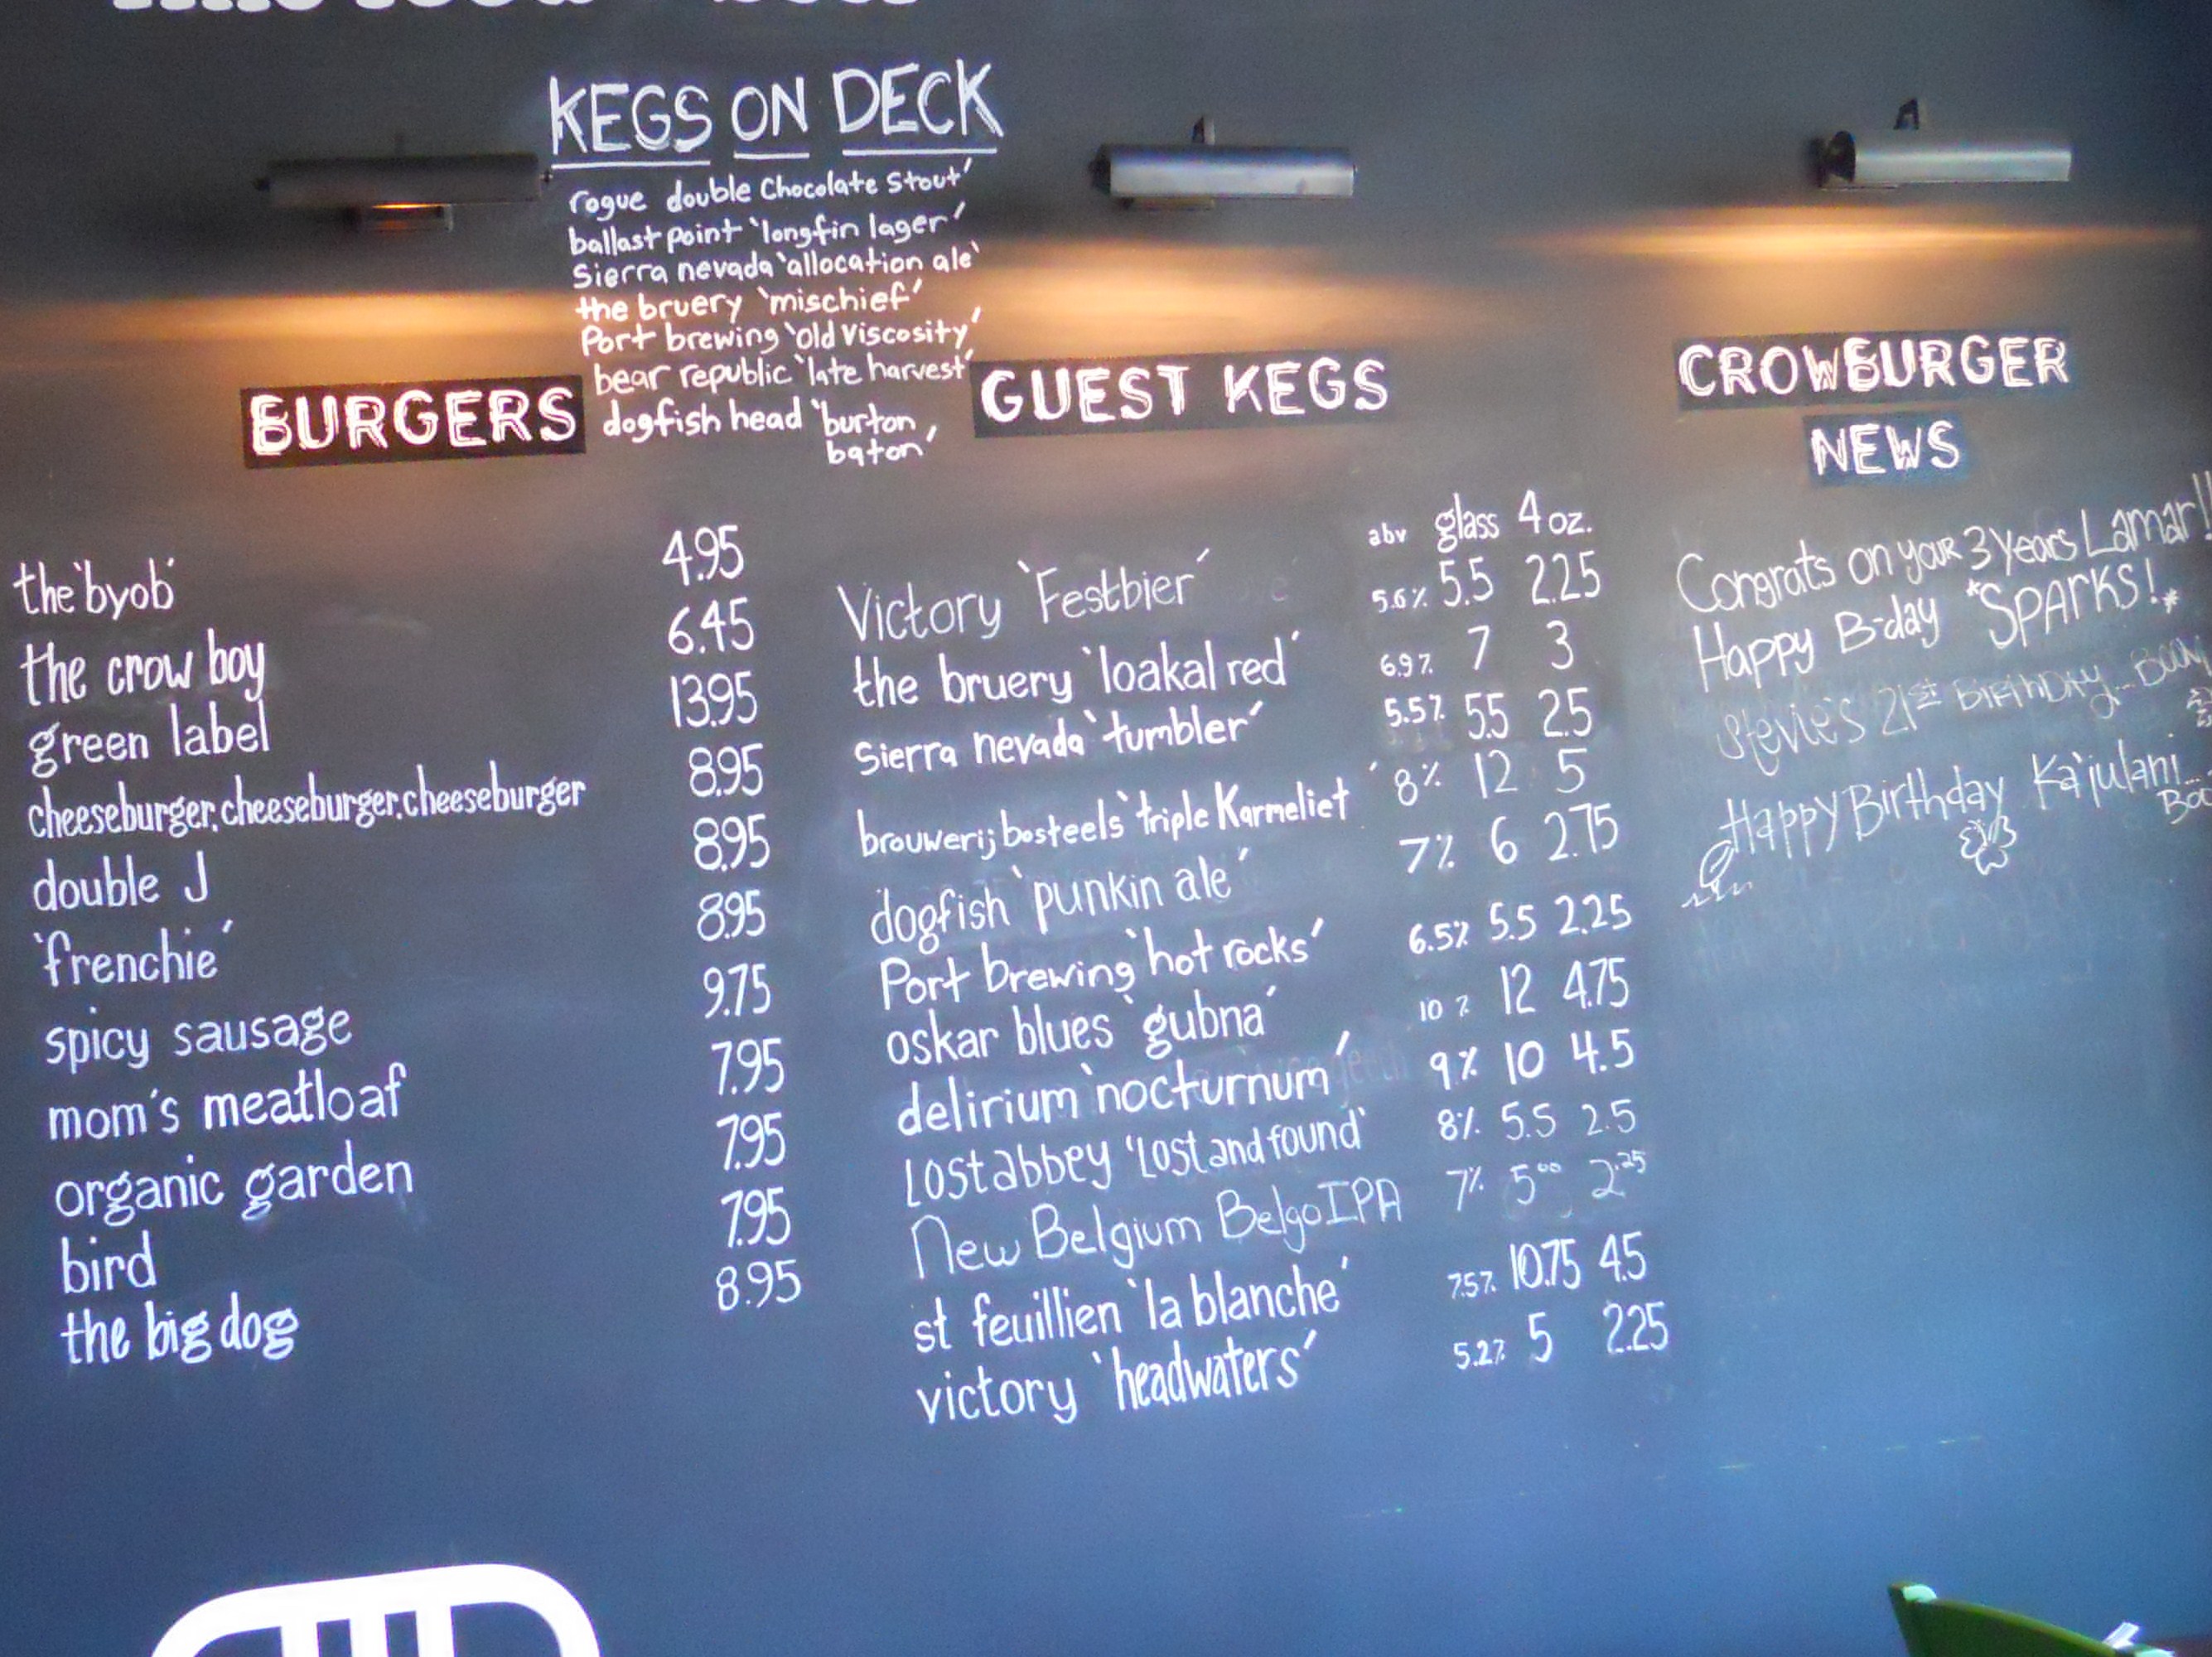 KEGS ON DECK
rogue double Chocolate Stout'
ballast point 'longfin lager'
Sierra nevada 'allocation ale'
the bruery 'mischief'
Port brewing 'old Viscosity'
bear republic 'late harvest'
dogfish head 'burton
baton'
BURGERS
the 'byob' 4.95
the crow boy 6.45
green label 13.95
cheeseburger, cheeseburger, cheeseburger 8.95
double J 8.95
'frenchie' 8.95
spicy sausage 9.75
mom's meatloaf 7.95
organic garden 7.95
bird 7.95
the big dog 8.95
GUEST KEGS
abv glass 4 oz.
Victory 'Festbier' 5.6% 5.5 2.25
the bruery 'loakal red' 6.9% 7 3
Sierra nevada 'tumbler' 5.5% 5.5 2.5
brouwerij bosteels 'triple Karmeliet' 8% 12 5
dogfish 'punkin ale' 7% 6 2.75
Port brewing 'hot rocks' 6.5% 5.5 2.25
oskar blues 'gubna' 10% 12 4.75
delirium 'nocturnum' 9% 10 4.5
Lost abbey 'Lost and found' 8% 5.5 2.5
New Belgium Belgo IPA 7% 5.00 2.25
st feuillien 'la blanche' 7.5% 10.75 4.5
victory 'headwaters' 5.2% 5 2.25
CROWBURGER
NEWS
Congrats on your 3 years Lamar!!
Happy B-day *SPARKS!*
Stevie's 21st BIRTHDAY... BOOM
Happy Birthday Ka'julani...